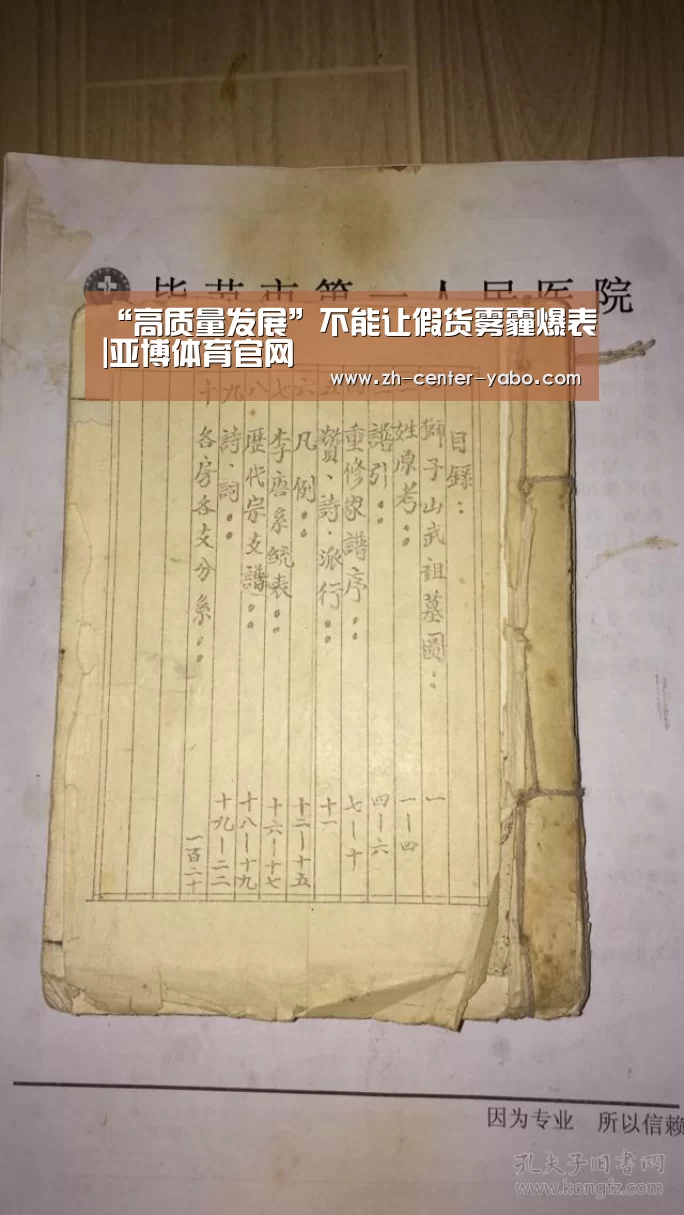 毕节市第一人民医院
“高质量发展”不能让假货雾霾爆表
|亚博体育官网
www.zh-center-yabo.com
目録：
獅子山武祖墓圖： 一
姓原考： 一—四
譜引： 四—六
重修家譜序： 七—十
贊、詩、派行： 十一
六 凡例： 十二—十五
七 李唐系統表： 十六—十七
八 歷代宗支譜： 十八—十九
九 詩、詞： 十九—二二
十 各房各支分系： 一百二十
因为专业 所以信赖
孔夫子旧书网
www.kongfz.com